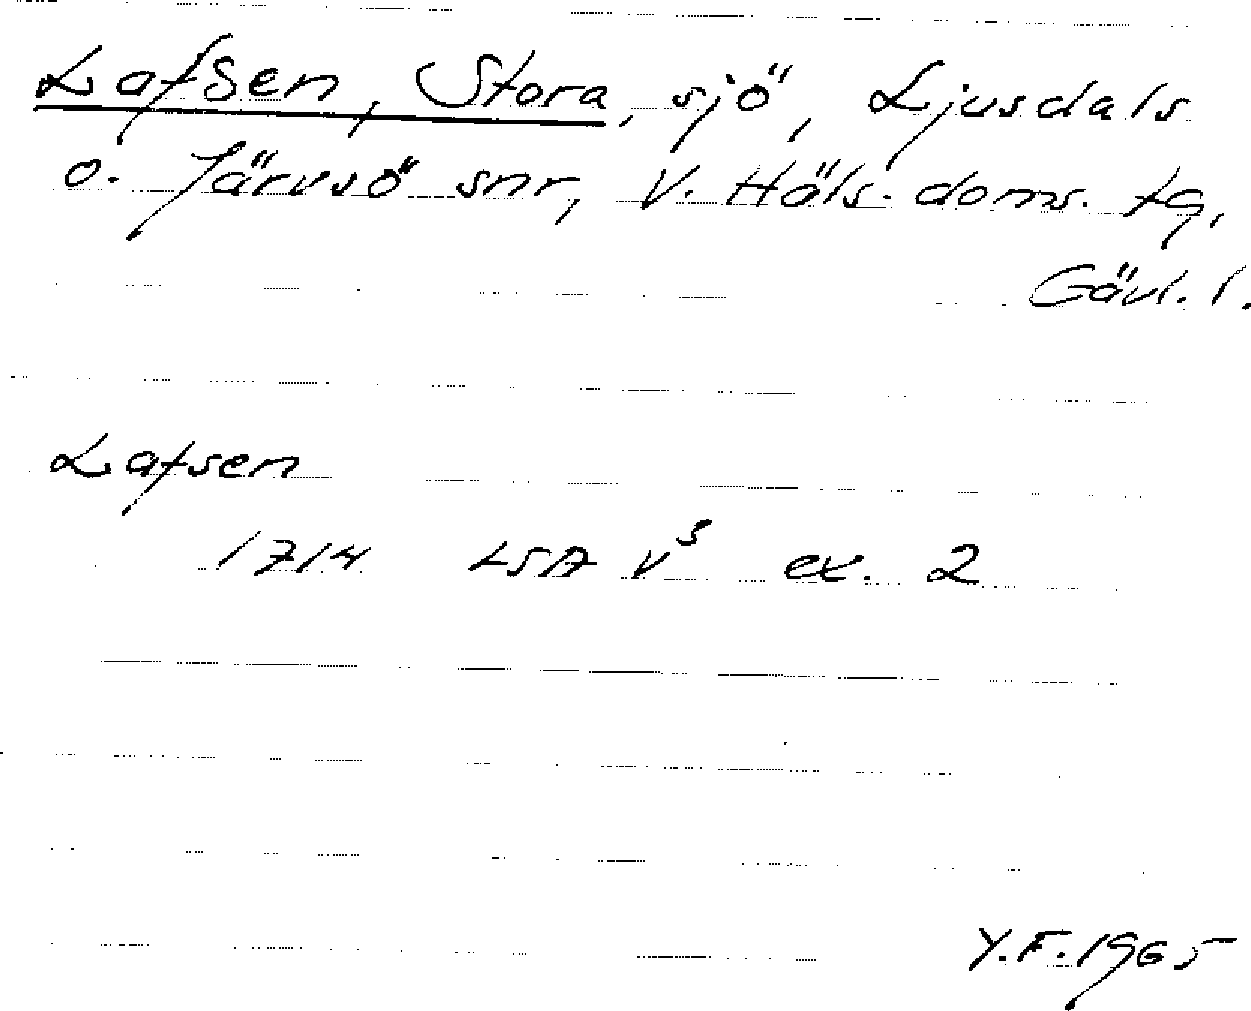 Lafsen, Stora, sjö, Ljusdals
o. Järvsö snr, V. Häls. doms. tg,
Gävl. l.
Lafsen
1714 LSA V⁵ ex. 2
Y.F. 1965